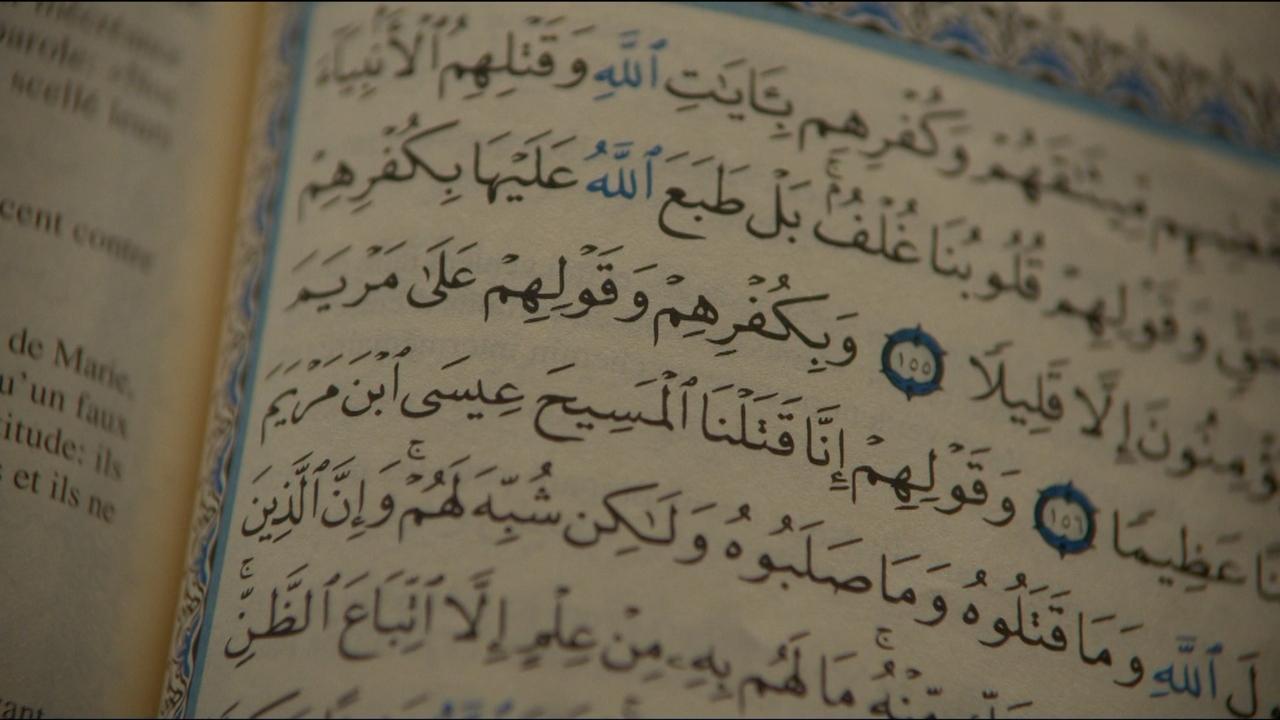 parole:
scellé leurs
cent contre
de Marie,
u'un faux
titude: ils
s et ils ne
مِّيثَٰقَهُمْ وَكُفْرِهِم بِـَٔايَٰتِ ٱللَّهِ وَقَتْلِهِمُ ٱلْأَنۢبِيَآءَ
وَقَوْلِهِمْ قُلُوبُنَا غُلْفٌۢ ۚ بَلْ طَبَعَ ٱللَّهُ عَلَيْهَا بِكُفْرِهِمْ
يُؤْمِنُونَ إِلَّا قَلِيلًا ١٥٥ وَبِكُفْرِهِمْ وَقَوْلِهِمْ عَلَىٰ مَرْيَمَ
عَظِيمًا ١٥٦ وَقَوْلِهِمْ إِنَّا قَتَلْنَا ٱلْمَسِيحَ عِيسَى ٱبْنَ مَرْيَمَ
ٱللَّهِ وَمَا قَتَلُوهُ وَمَا صَلَبُوهُ وَلَٰكِن شُبِّهَ لَهُمْ ۚ وَإِنَّ ٱلَّذِينَ
مِّنْهُ ۚ مَا لَهُم بِهِۦ مِنْ عِلْمٍ إِلَّا ٱتِّبَاعَ ٱلظَّنِّ ۚ